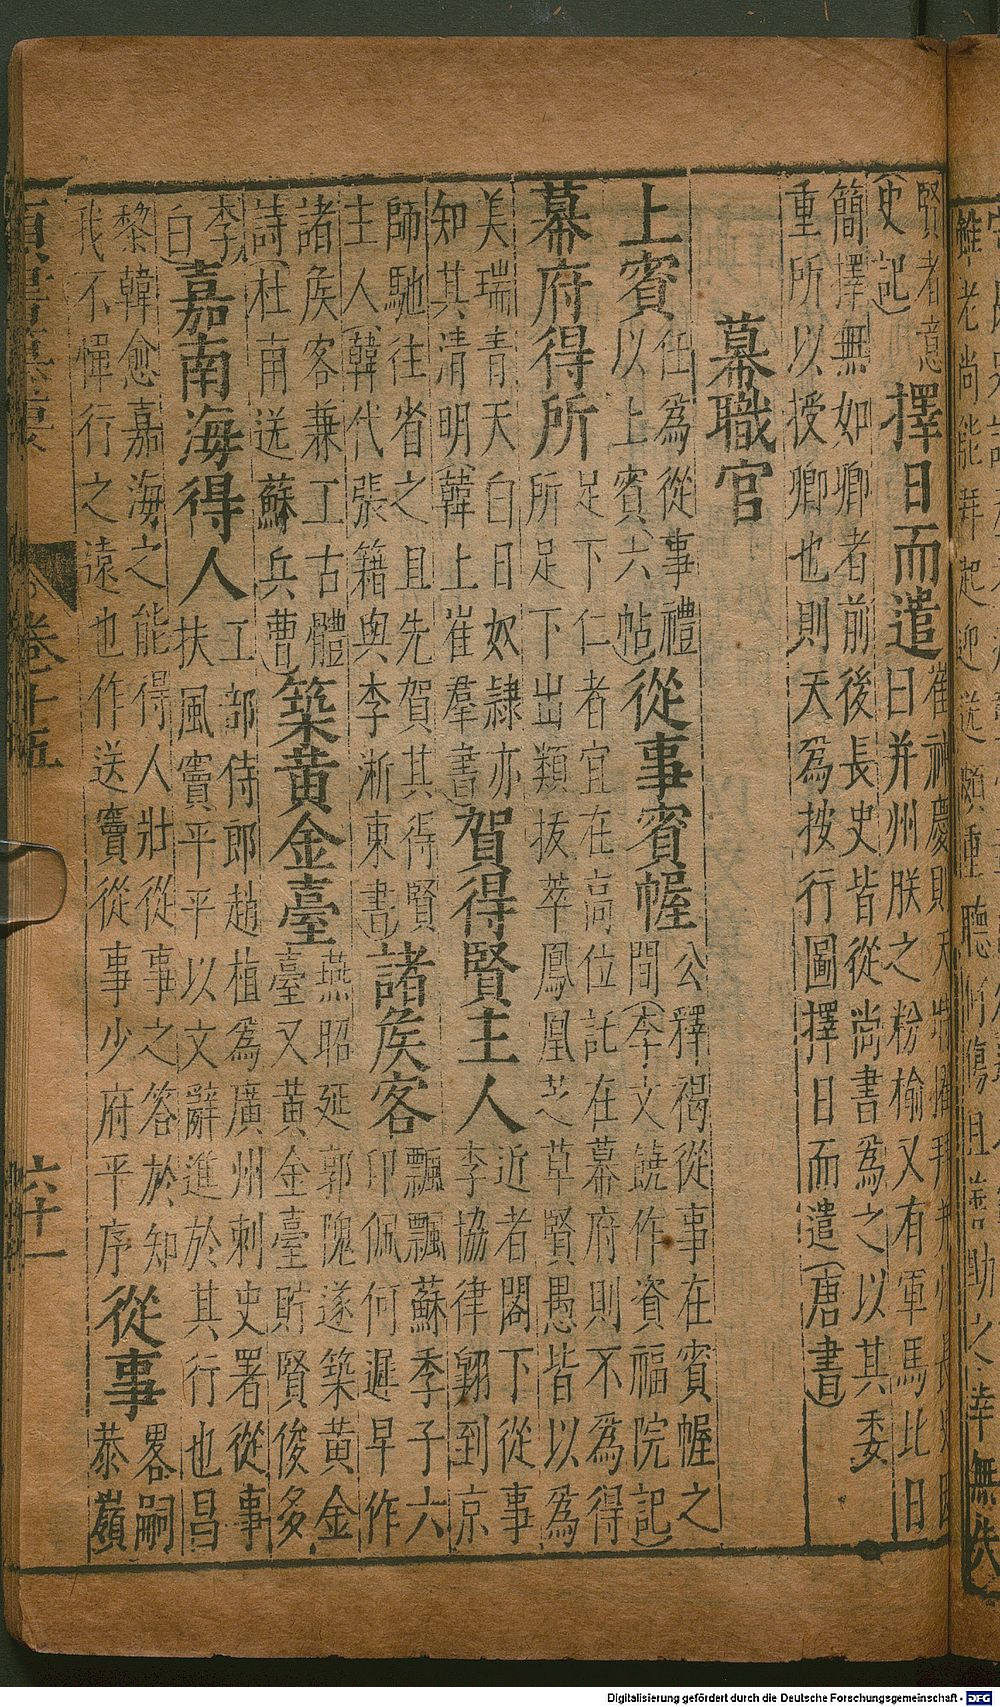 賢者意
史起)
擇日而遣
崔神慶則天時擢拜并州長史因
曰并州朕之枌榆又有軍馬比日
簡擇無如卿者前後長史皆從尚書為之以其委
重所以授卿也則天為按行圖擇日而遣(唐書)
幕職官
上賓
任為從事禮
以上賓(六帖)
從事賓幄
公釋褐從事在賓幄之
間(李文饒作資福院記)
幕府得所
足下仁者宜在高位託在幕府則不為得
所足下出類拔萃鳳凰芝草賢愚皆以為
美瑞青天白日奴隷亦
知其清明(韓上崔羣書)
賀得賢主人
近者閣下從事
李協律翺到京
師馳往省之且先賀其得賢
主人(韓代張籍與李浙東書)
諸侯客
飄飄蘇季子六
印佩何遲早作
諸侯客兼工古體
詩(杜甫送蘇兵曹)
築黃金臺
燕昭延郭隗遂築黃金
臺又黃金臺貯賢俊多
李
白)
嘉南海得人
工部侍郎趙植為廣州刺史署從事
扶風竇平平以文辭進於其行也昌
黎韓愈嘉海之能得人壯從事之答於知
我不憚行之遠也作送竇從事少府平序
從事
畧嗣
恭嶺
卷十五
六十一
Digitalisierung gefördert durch die Deutsche Forschungsgemeinschaft - DFG